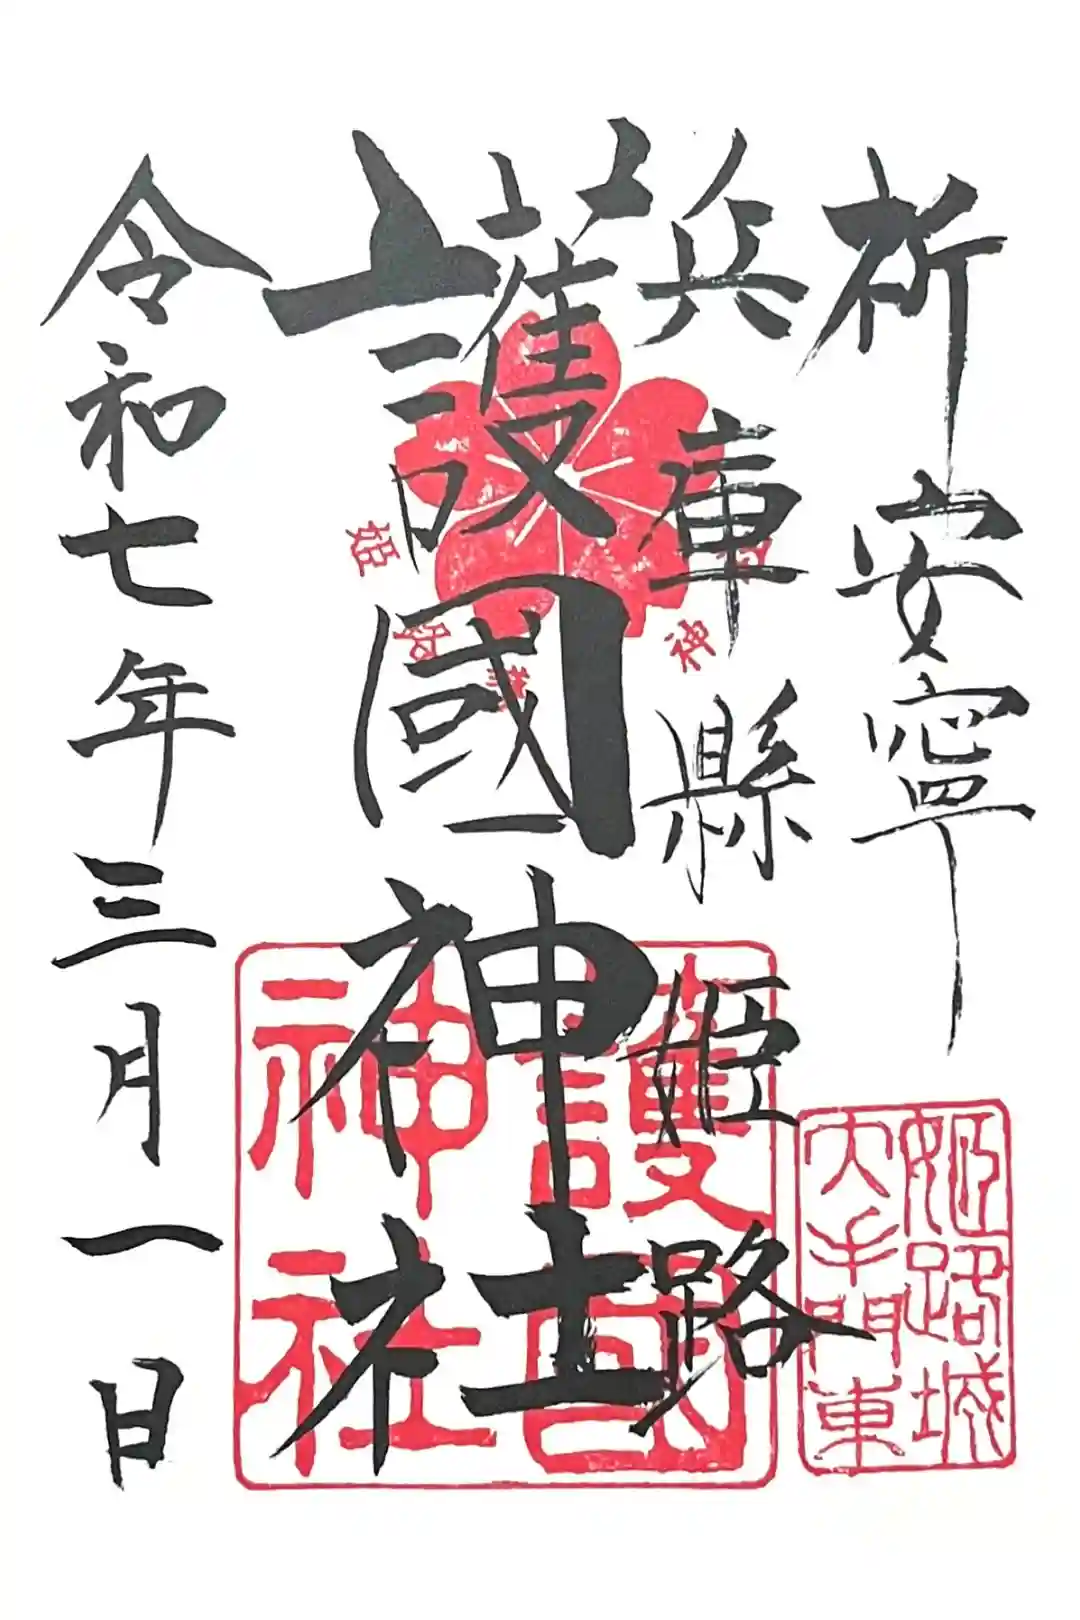 祈安寧
兵庫縣姫路
護國神社
令和七年三月一日
護国神社
姫路城大手門東